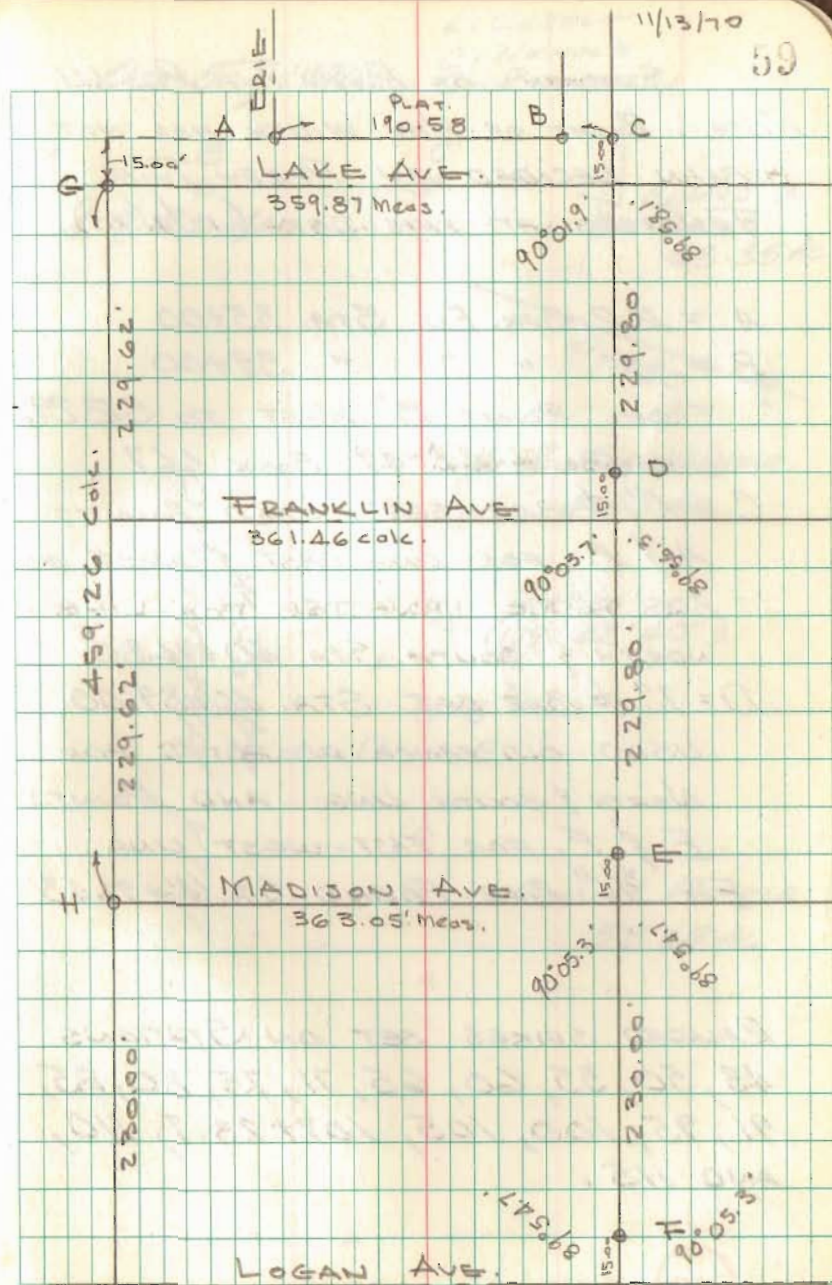 11/13/70
59
ERIE
PLAT.
A 190.58 B C
15.00'
15.00
G LAKE AVE.
359.87 Meas.
90°01.9' 89°58.1'
229.62' 229.80'
459.26 Calc.
D
15.00
FRANKLIN AVE
361.46 calc.
90°03.7' 89°56.3'
229.62' 229.80'
E
15.00
H MADISON AVE.
363.05' Meas.
90°05.3' 89°54.7'
230.00' 230.00'
89°54.7' F 90°05.3'
15.00
LOGAN AVE.